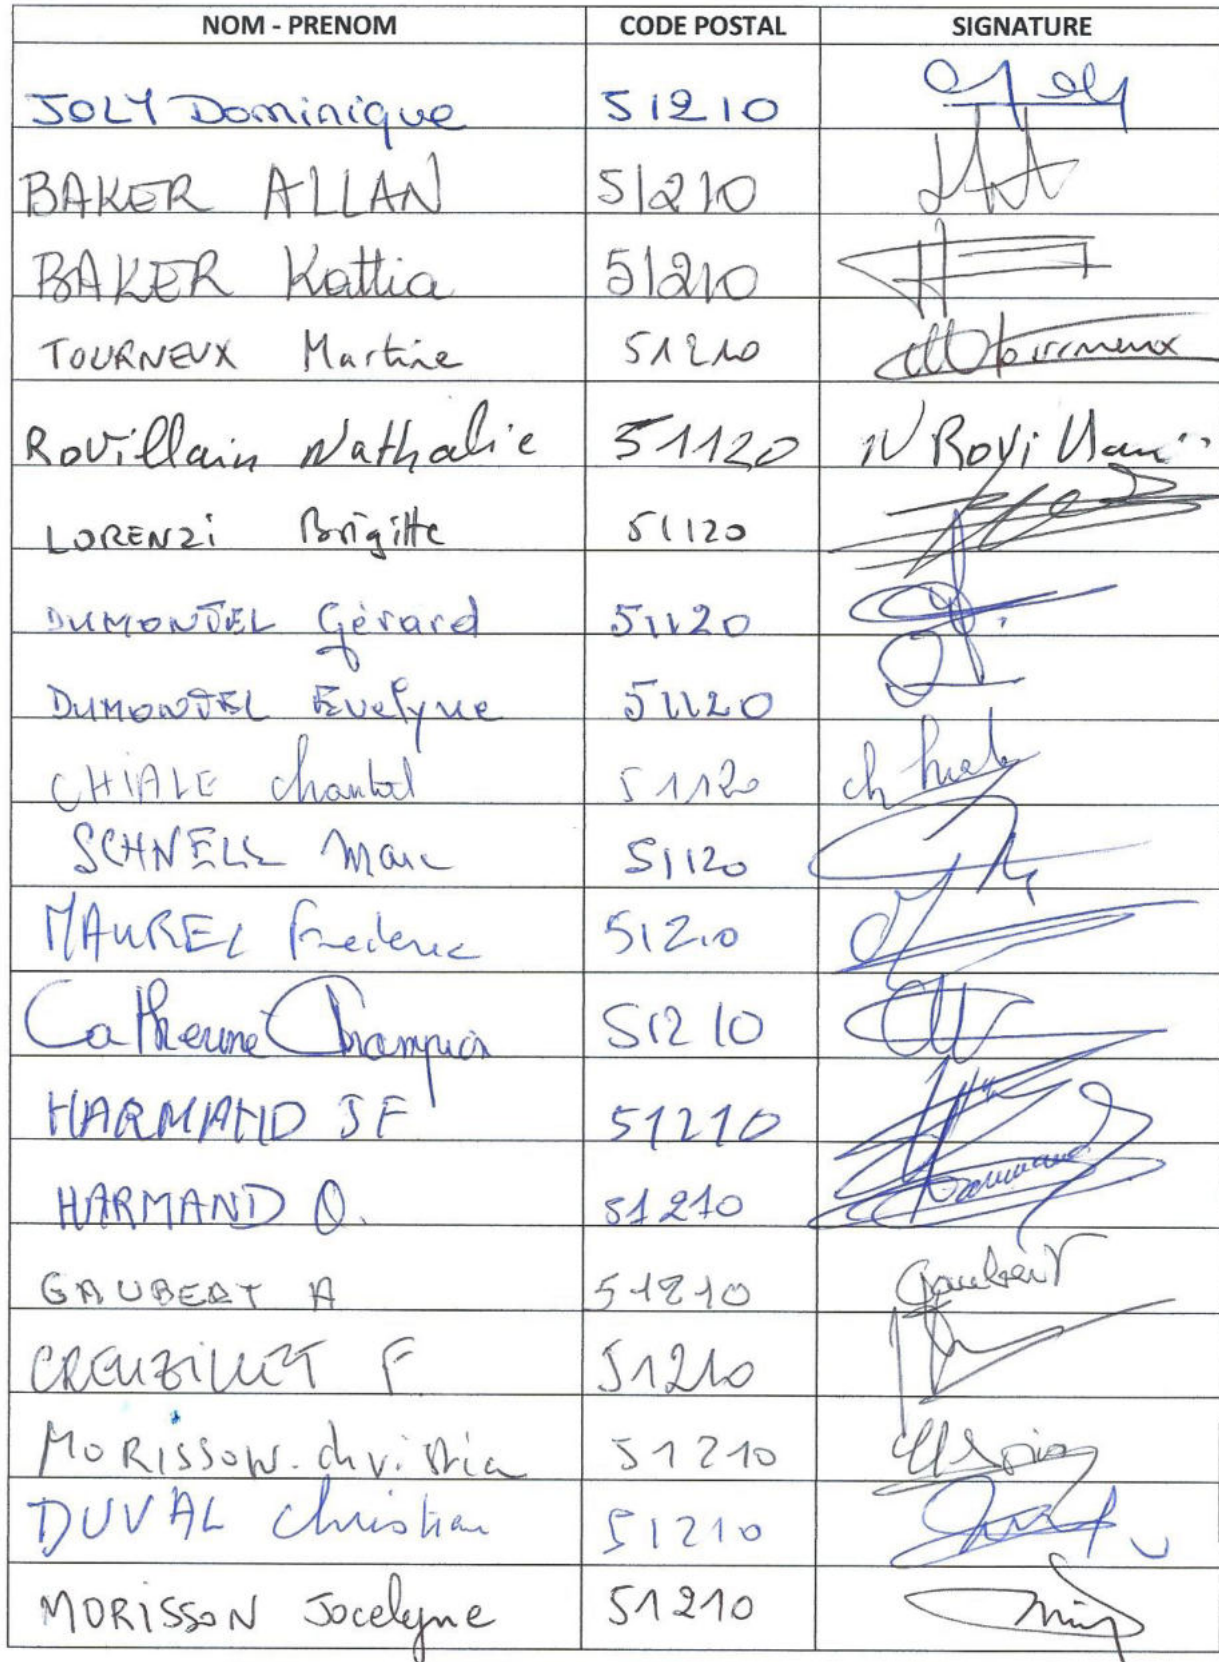 NOM - PRENOM CODE POSTAL SIGNATURE
JOLY Dominique 51210
BAKER ALLAN 51210
BAKER Kattia 51210
TOURNEUX Martine 51210 MTourneux
Rovillain Nathalie 51120 N Rovillain
LORENZi Brigitte 51120
DUMONTEL Gérard 51120
DUMONTEL Evelyne 51120
CHIALE Chantal 51120
SCHNELL Marc 51120
MAUREL Frederic 51210
Catherine Champion 51210
HARMAND JF 51210
HARMAND O. 51210
GAUBERT A 51210 Gaubert
CREUZILLET F 51210
MORISSON 51210
DUVAL Christian 51210
MORISSON Jocelyne 51210